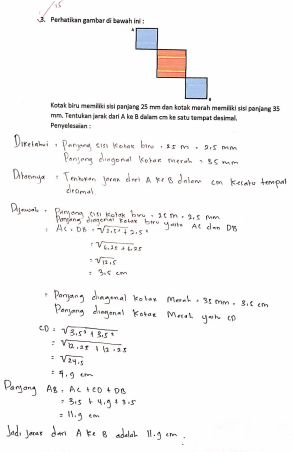 15
3. Perhatikan gambar di bawah ini :
A
B
Kotak biru memiliki sisi panjang 25 mm dan kotak merah memiliki sisi panjang 35
mm. Tentukan jarak dari A ke B dalam cm ke satu tempat desimal.
Penyelesaian :
Diketahui : Panjang sisi kotak biru = 25 m = 2,5 mm
Panjang diagonal kotak merah = 35 mm
Ditanya : Tentukan jarak dari A ke B dalam cm kesatu tempat
desimal.
Dijawab : Panjang sisi kotak biru = 25 m = 2,5 mm
Panjang diagonal kotak biru yaitu AC dan DB
: AC = DB = √2,5² + 2,5²
= √6,25 + 6,25
= √12,5
= 3,5 cm
• Panjang diagonal kotak merah = 35 mm = 3,5 cm
Panjang diagonal kotak merah yaitu CD
CD = √3,5² + 3,5²
= √12,25 + 12,25
= √24,5
= 4,9 cm
Panjang AB = AC + CD + DB
= 3,5 + 4,9 + 3,5
= 11,9 cm
Jadi jarak dari A ke B adalah 11,9 cm.